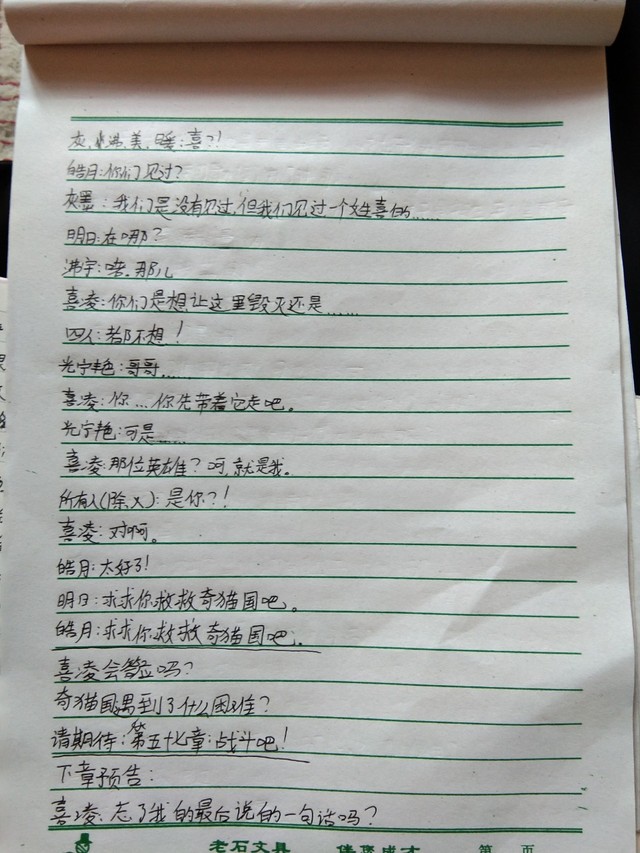 灰,沸,美,暖:喜?!
皓月:你们见过?
灰墨:我们是没有见过,但我们见过一个姓喜的……
明日:在哪?
沸宇:喏。那儿
喜凌:你们是想让这里毁灭还是……
四人:都不想!
光宁艳:哥哥……
喜凌:你…你先带着它走吧。
光宁艳:可是……
喜凌:那位英雄?呵,就是我。
所有人(除,火):是你?!
喜凌:对啊。
皓月:太好了!
明日:求求你救救奇猫国吧。
皓月:求求你救救奇猫国吧。
喜凌会答应吗?
奇猫国遇到了什么困难?
请期待:第五十七章:战斗吧!
下章预告:
喜凌:忘了我的最后说的一句话吗?
老石文具 第 页